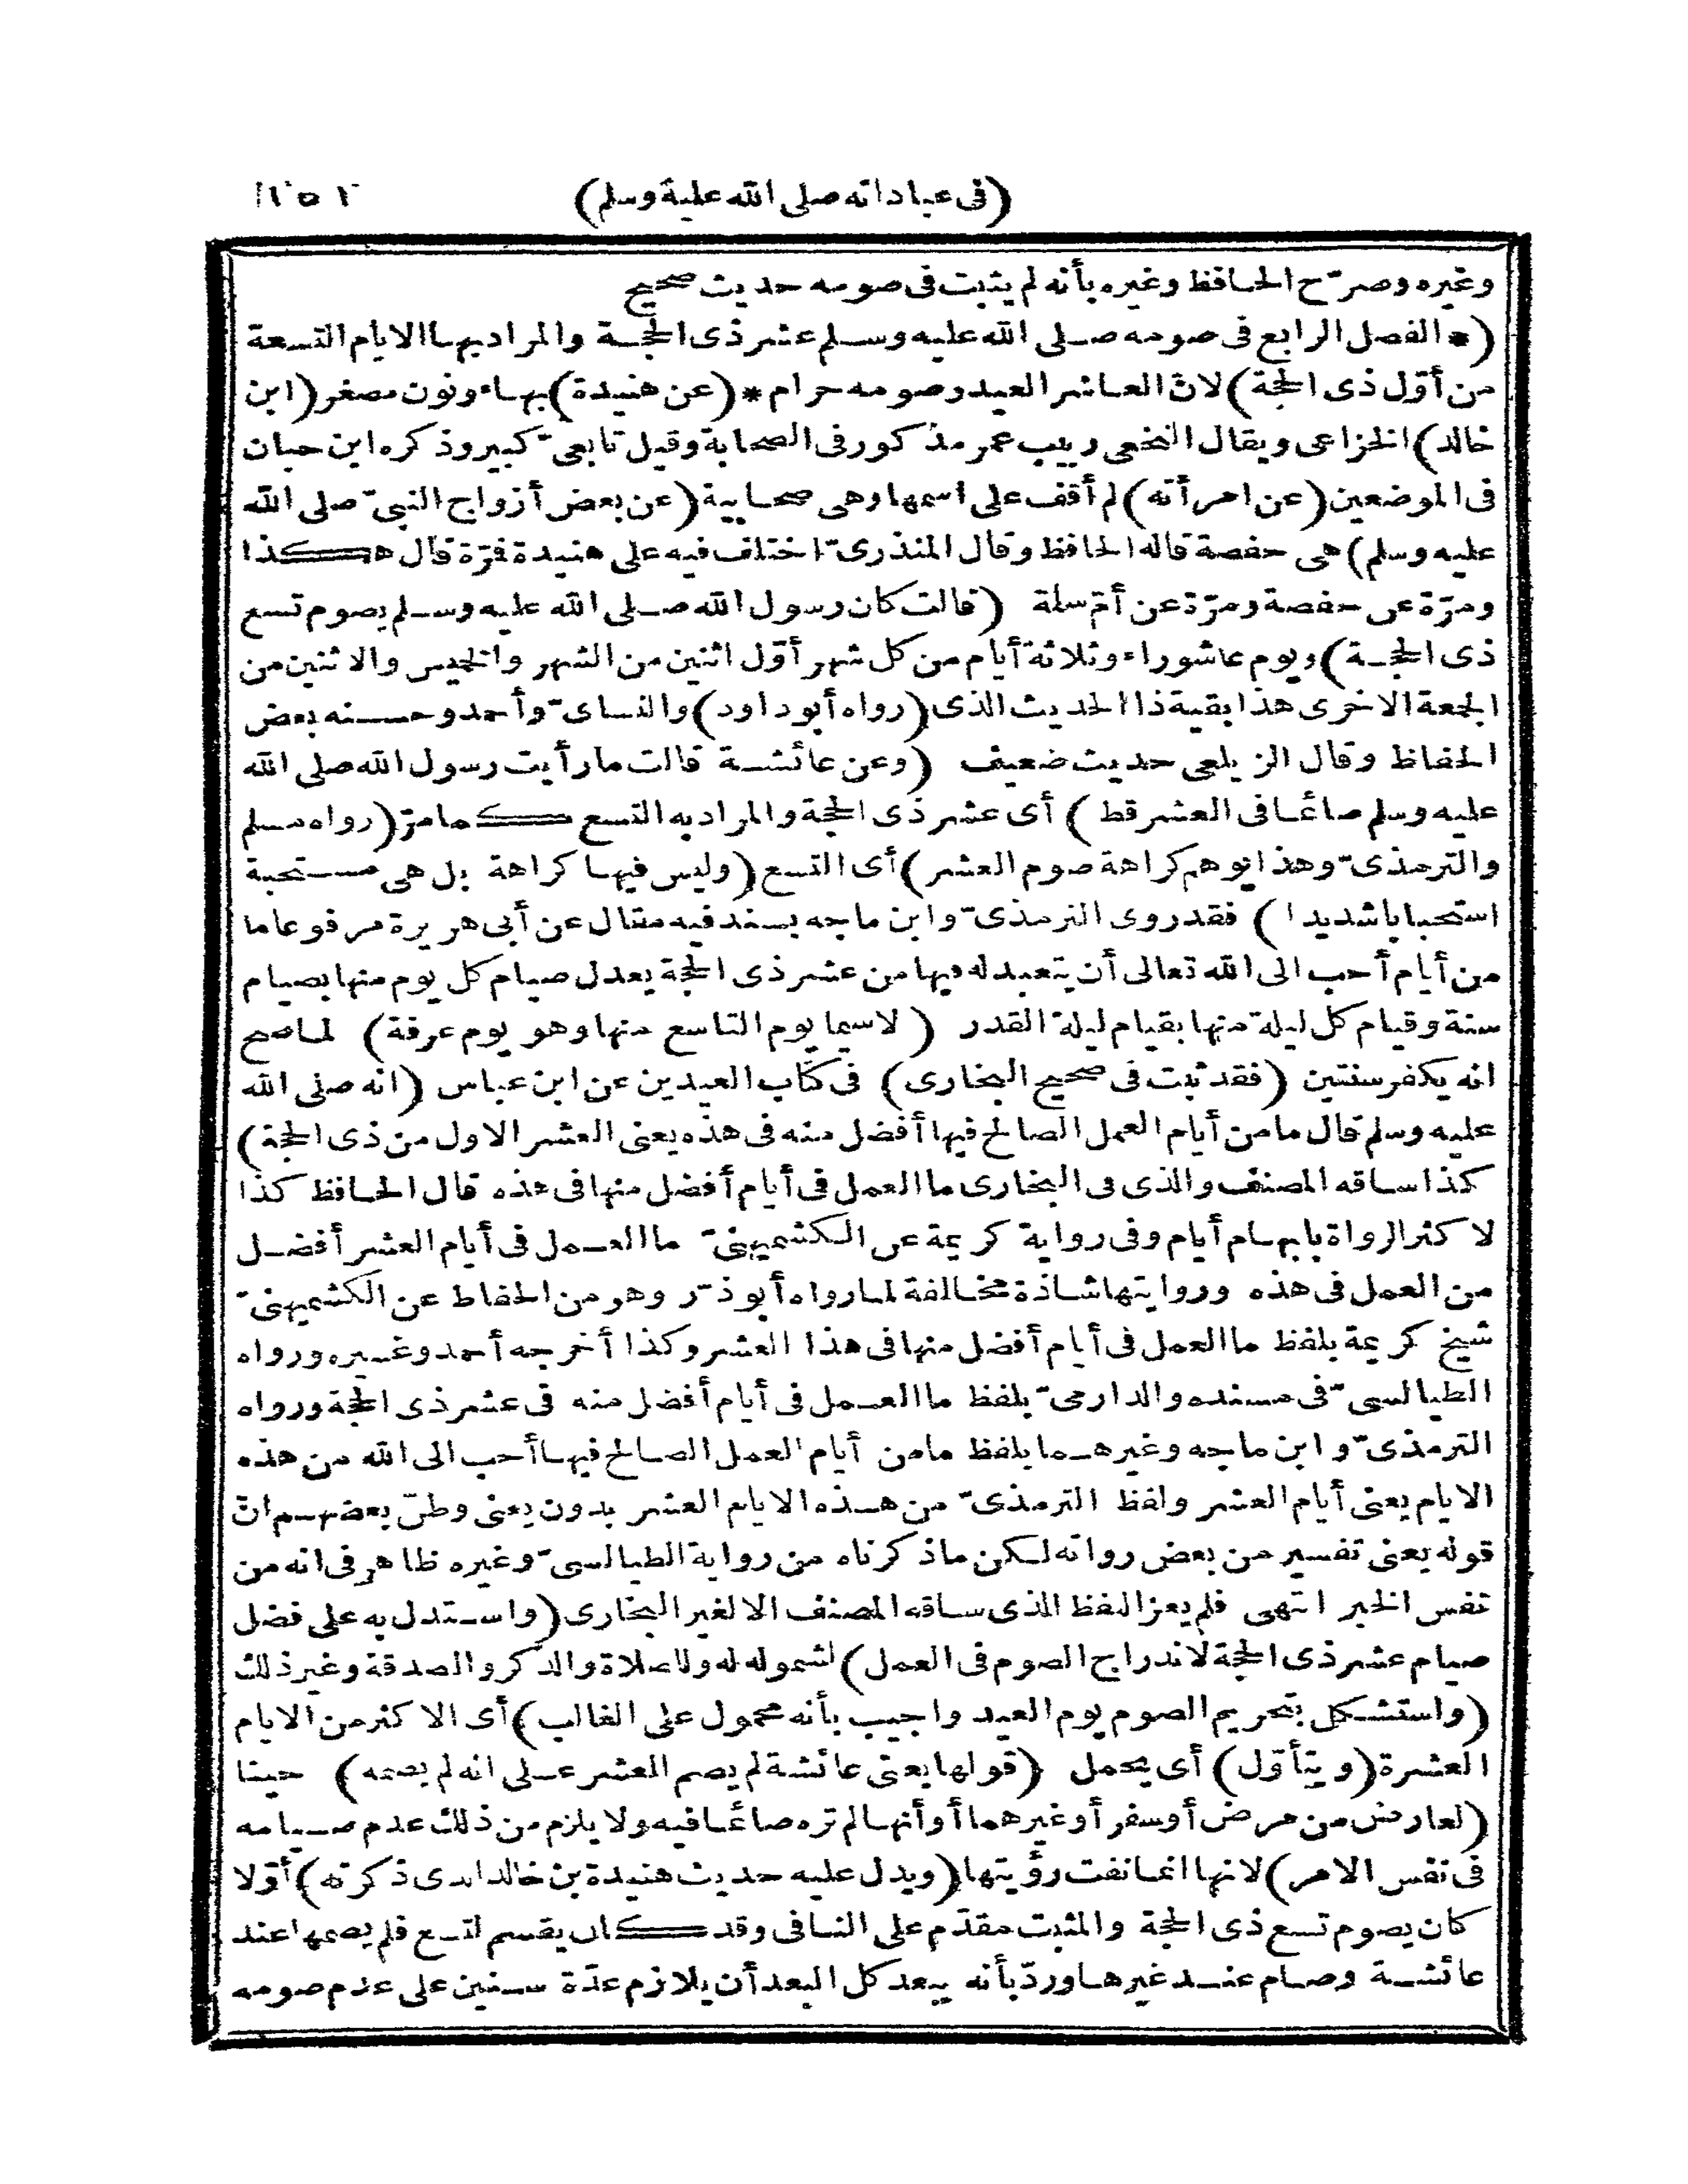 (فى عباداته صلى الله عليه وسلم)
وغيره وصرّح الحافظ وغيره بأنه لم يثبت فى صومه حديث صحيح
(* الفصل الرابع فى صومه صلى الله عليه وسلم عشر ذى الحجة والمراد بها الايام التسعة
من أوّل ذى الحجة) لانّ العاشر العيد وصومه حرام * (عن هنيدة) بهاء ونون مصغر (ابن
خالد) الخزاعى ويقال النخعى ربيب عمر مذكور فى الصحابة وقيل تابعىّ كبير وذكره ابن حبان
فى الموضعين (عن امرأته) لم أقف على اسمها وهى صحابية (عن بعض أزواج النبىّ صلى الله
عليه وسلم) هى حفصة قاله الحافظ وقال المنذرىّ اختلف فيه على هنيدة فمرّة قال هكذا
ومرّة عن حفصة ومرّة عن أمّ سلمة (قالت كان رسول الله صلى الله عليه وسلم يصوم تسع
ذى الحجة) ويوم عاشوراء وثلاثة أيام من كل شهر أوّل اثنين من الشهر والخميس والاثنين من
الجمعة الاخرى هذا بقية ذا الحديث الذى (رواه أبو داود) والنساىّ وأحمد وحسنه بعض
الحفاظ وقال الزيلعى حديث ضعيف (وعن عائشة قالت ما رأيت رسول الله صلى الله
عليه وسلم صائما فى العشر قط) أى عشر ذى الحجة والمراد به التسع كما مرّ (رواه مسلم
والترمذىّ وهذا يوهم كراهة صوم العشر) أى التسع (وليس فيها كراهة بل هى مستحبة
استحبابا شديدا) فقد روى الترمذىّ وابن ماجه بسند فيه مقال عن أبى هريرة مرفوعا ما
من أيام أحب الى الله تعالى أن يتعبد له فيها من عشر ذى الحجة يعدل صيام كل يوم منها بصيام
سنة وقيام كل ليلة منها بقيام ليلة القدر (لاسيما يوم التاسع منها وهو يوم عرفة) لما صح
انه يكفر سنتين (فقد ثبت فى صحيح البخارى) فى كتاب العيدين عن ابن عباس (انه صلى الله
عليه وسلم قال ما من أيام العمل الصالح فيها أفضل منه فى هذه يعنى العشر الاول من ذى الحجة)
كذا ساقه المصنف والذى فى البخارى ما العمل فى أيام أفضل منها فى هذه قال الحافظ كذا
لاكثر الرواة بابهام أيام وفى رواية كريمة عن الكشميهنىّ ما العمل فى أيام العشر أفضل
من العمل فى هذه وروايتها شاذة مخالفة لما رواه أبو ذرّ وهو من الحفاظ عن الكشميهنىّ
شيخ كريمة بلفظ ما العمل فى أيام أفضل منها فى هذا العشر وكذا أخرجه أحمد وغيره ورواه
الطيالسىّ فى مسنده والدارمىّ بلفظ ما العمل فى أيام أفضل منه فى عشر ذى الحجة ورواه
الترمذىّ وابن ماجه وغيرهما بلفظ ما من أيام العمل الصالح فيها أحب الى الله من هذه
الايام يعنى أيام العشر ولفظ الترمذىّ من هذه الايام العشر بدون يعنى وظنّ بعضهم انّ
قوله يعنى تفسير من بعض رواته لكن ما ذكرناه من رواية الطيالسىّ وغيره ظاهر فى انه من
نفس الخبر انتهى فلم يعز اللفظ الذى ساقه المصنف الا لغير البخارى (واستدل به على فضل
صيام عشر ذى الحجة لاندراج الصوم فى العمل) لشموله له وللصلاة والذكر والصدقة وغير ذلك
(واستشكل بتحريم الصوم يوم العيد واجيب بأنه محمول على الغالب) أى الاكثر من الايام
العشرة (ويتأوّل) أى يحمل (قولها يعنى عائشة لم يصم العشر على انه لم يصمه) حينا
(لعارض من مرض أو سفر أو غيرهما أو أنها لم تره صائما فيه ولا يلزم من ذلك عدم صيامه
فى نفس الامر) لانها انما نفت رؤيتها (ويدل عليه حديث هنيدة بن خالد الذى ذكرته) أوّلا
كان يصوم تسع ذى الحجة والمثبت مقدّم على النافى وقد كان يقسم لتسع فلم يصمها عند
عائشة وصام عند غيرها وردّ بأنه يبعد كل البعد أن يلازم عدّة سنين على عدم صومه